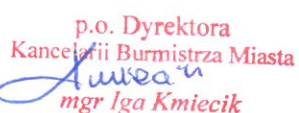 p.o. Dyrektora
Kancelarii Burmistrza Miasta
mgr Iga Kmiecik